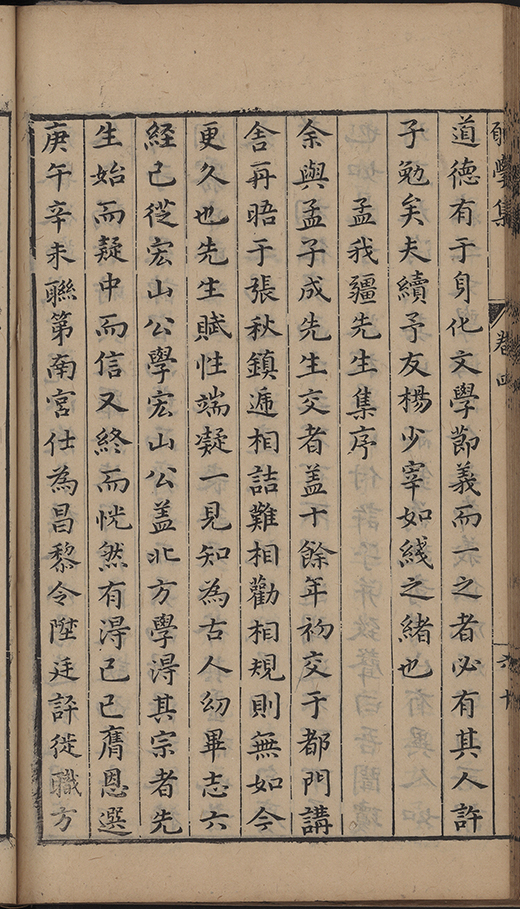 願學集
卷四
六十
道德有于身化文學節義而一之者必有其人許
子勉矣夫續予友楊少宰如綫之緒也
孟我疆先生集序
余與孟子成先生交者蓋十餘年初交于都門講
舍再晤于張秋鎮逓相詰難相勸相規則無如今
更久也先生賦性端疑一見知為古人幼畢志六
經已從宏山公學宏山公蓋北方學得其宗者先
生始而疑中而信又終而恍然有得己巳膺恩選
庚午辛未聯第南宮仕為昌黎令陞廷評徙職方